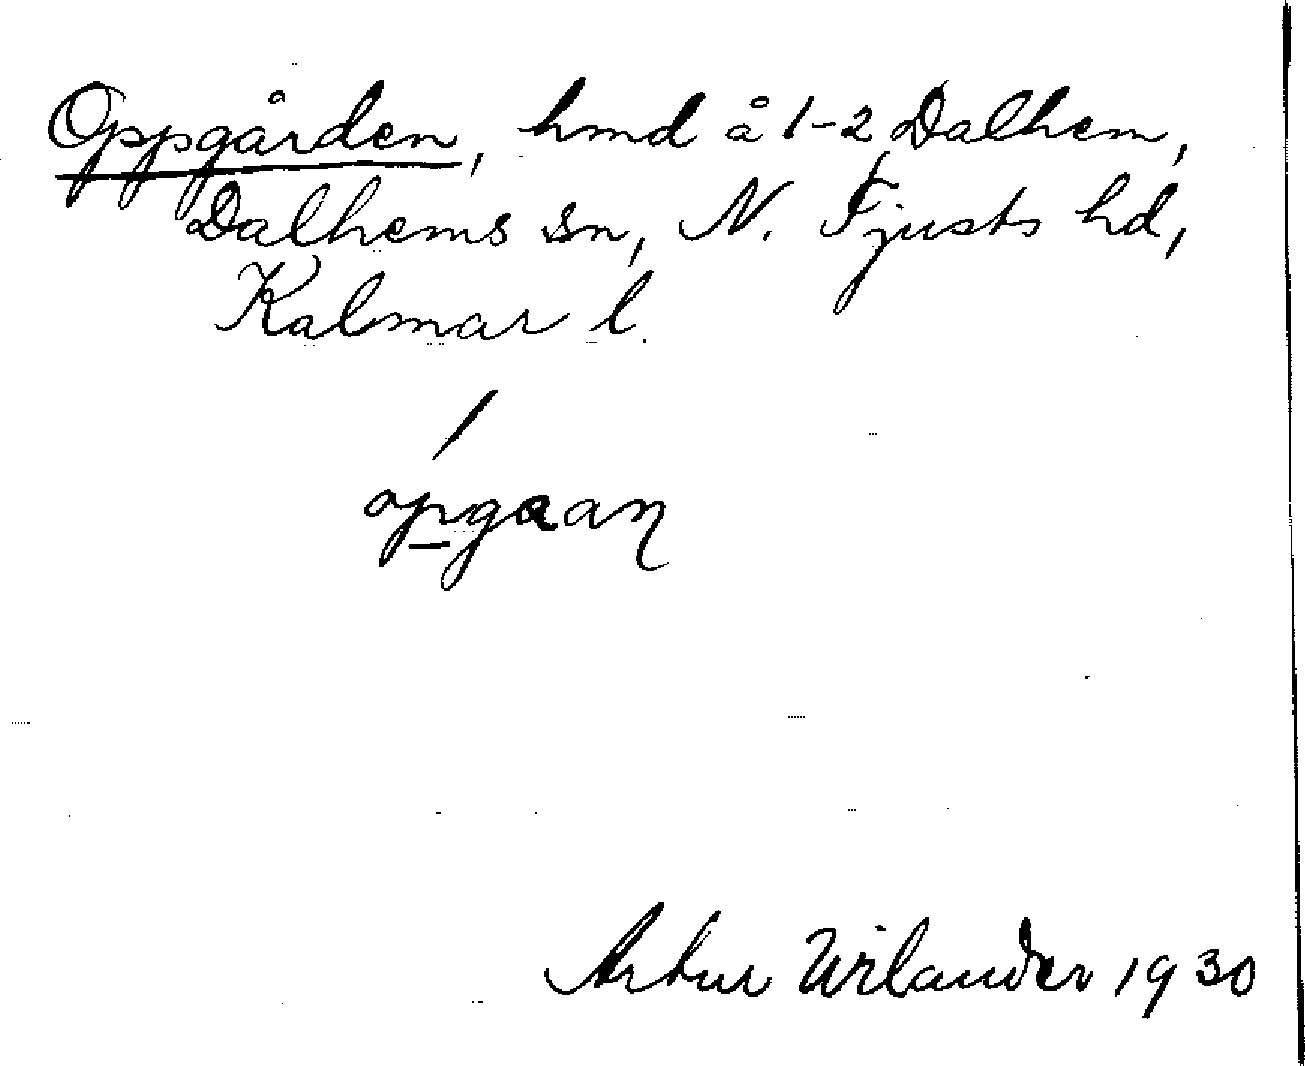 Oppgården, hmd å 1-2 Dalhem,
Dalhems sn, N. Tjusts hd,
Kalmar l.
/
opgaaŋ
Artur Wilander 1930